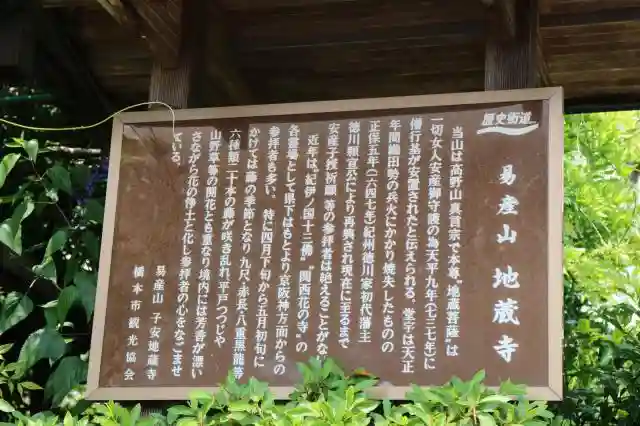 歴史街道
易産山 地蔵寺
当山は高野山真言宗で本尊〝地蔵菩薩〟は
一切女人安産御守護の為天平九年(七三七年)に
僧行基が安置されたと伝えられる。堂宇は天正
年間織田勢の兵火にかかり焼失したものの
正保五年(一六四七年)紀州徳川家初代藩主
徳川頼宣公により再興され現在に至るまで
安産子授祈願等の参拝者は絶えることがな
近年は、〝紀伊ノ国十三佛〟〝関西花の寺〟の
各霊場として県下はもとより京阪神方面からの
参拝者も多い。特に四月下旬から五月初旬に
かけては藤の季節となり九尺・赤長・八重黒龍等
六種類二十本の藤が咲き乱れ平戸つつじや
山野草等の開花とも重なり境内には芳香が漂い
さながら花の浄土と化し参拝者の心をなごませ
ている。
易産山 子安地蔵寺
橋本市観光協会